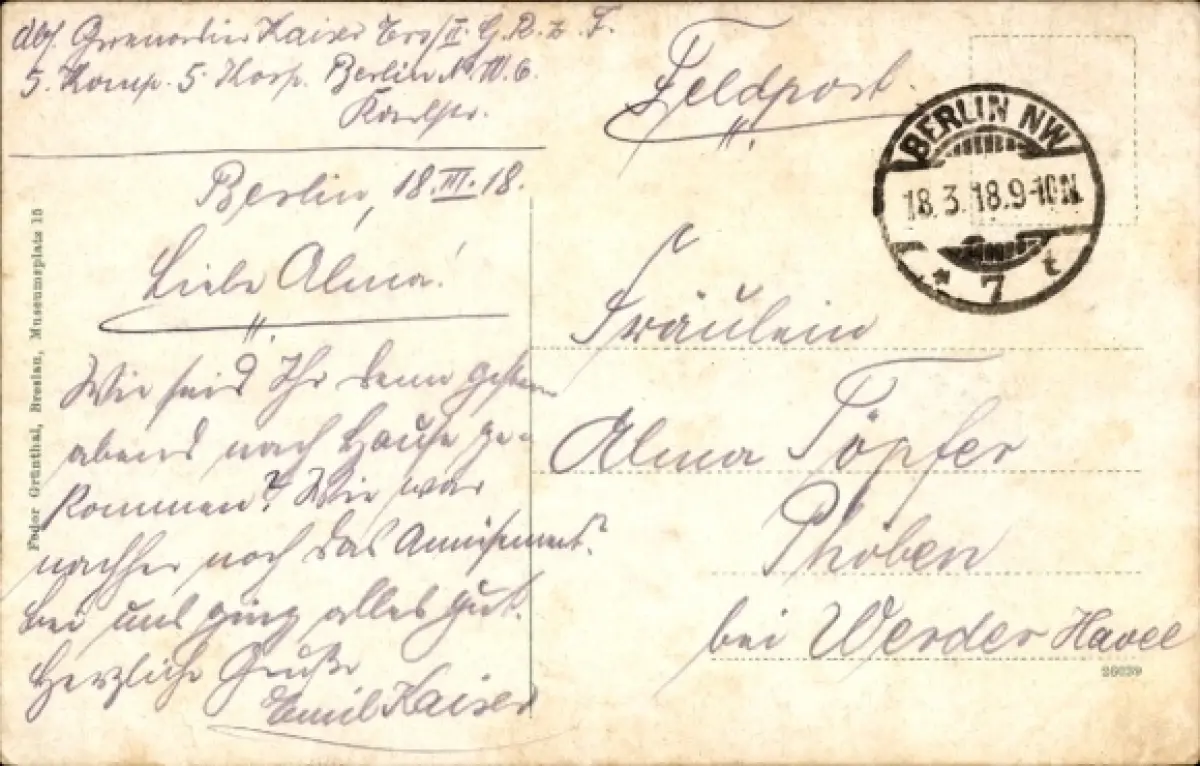 Abs. Grenadier Kaiser Ers/II. G. R. z. F.
5. Komp. 5 Korp. Berlin N.W. 6.
Karlstr.
Feldpost.
BERLIN NW
18.3.18.9-10N
* 7 t
Berlin, 18.III.18.
Liebe Alma!
Wie seid Ihr denn gestern
abend nach Hause ge-
kommen? Wie war
nachher noch das Amüsement?
Bei uns ging alles gut.
Herzliche Grüße
Emil Kaiser
Fräulein
Alma Töpfer
Phöben
bei Werder Havel
28039
Fedor Grünthal, Breslau, Museumsplatz 15